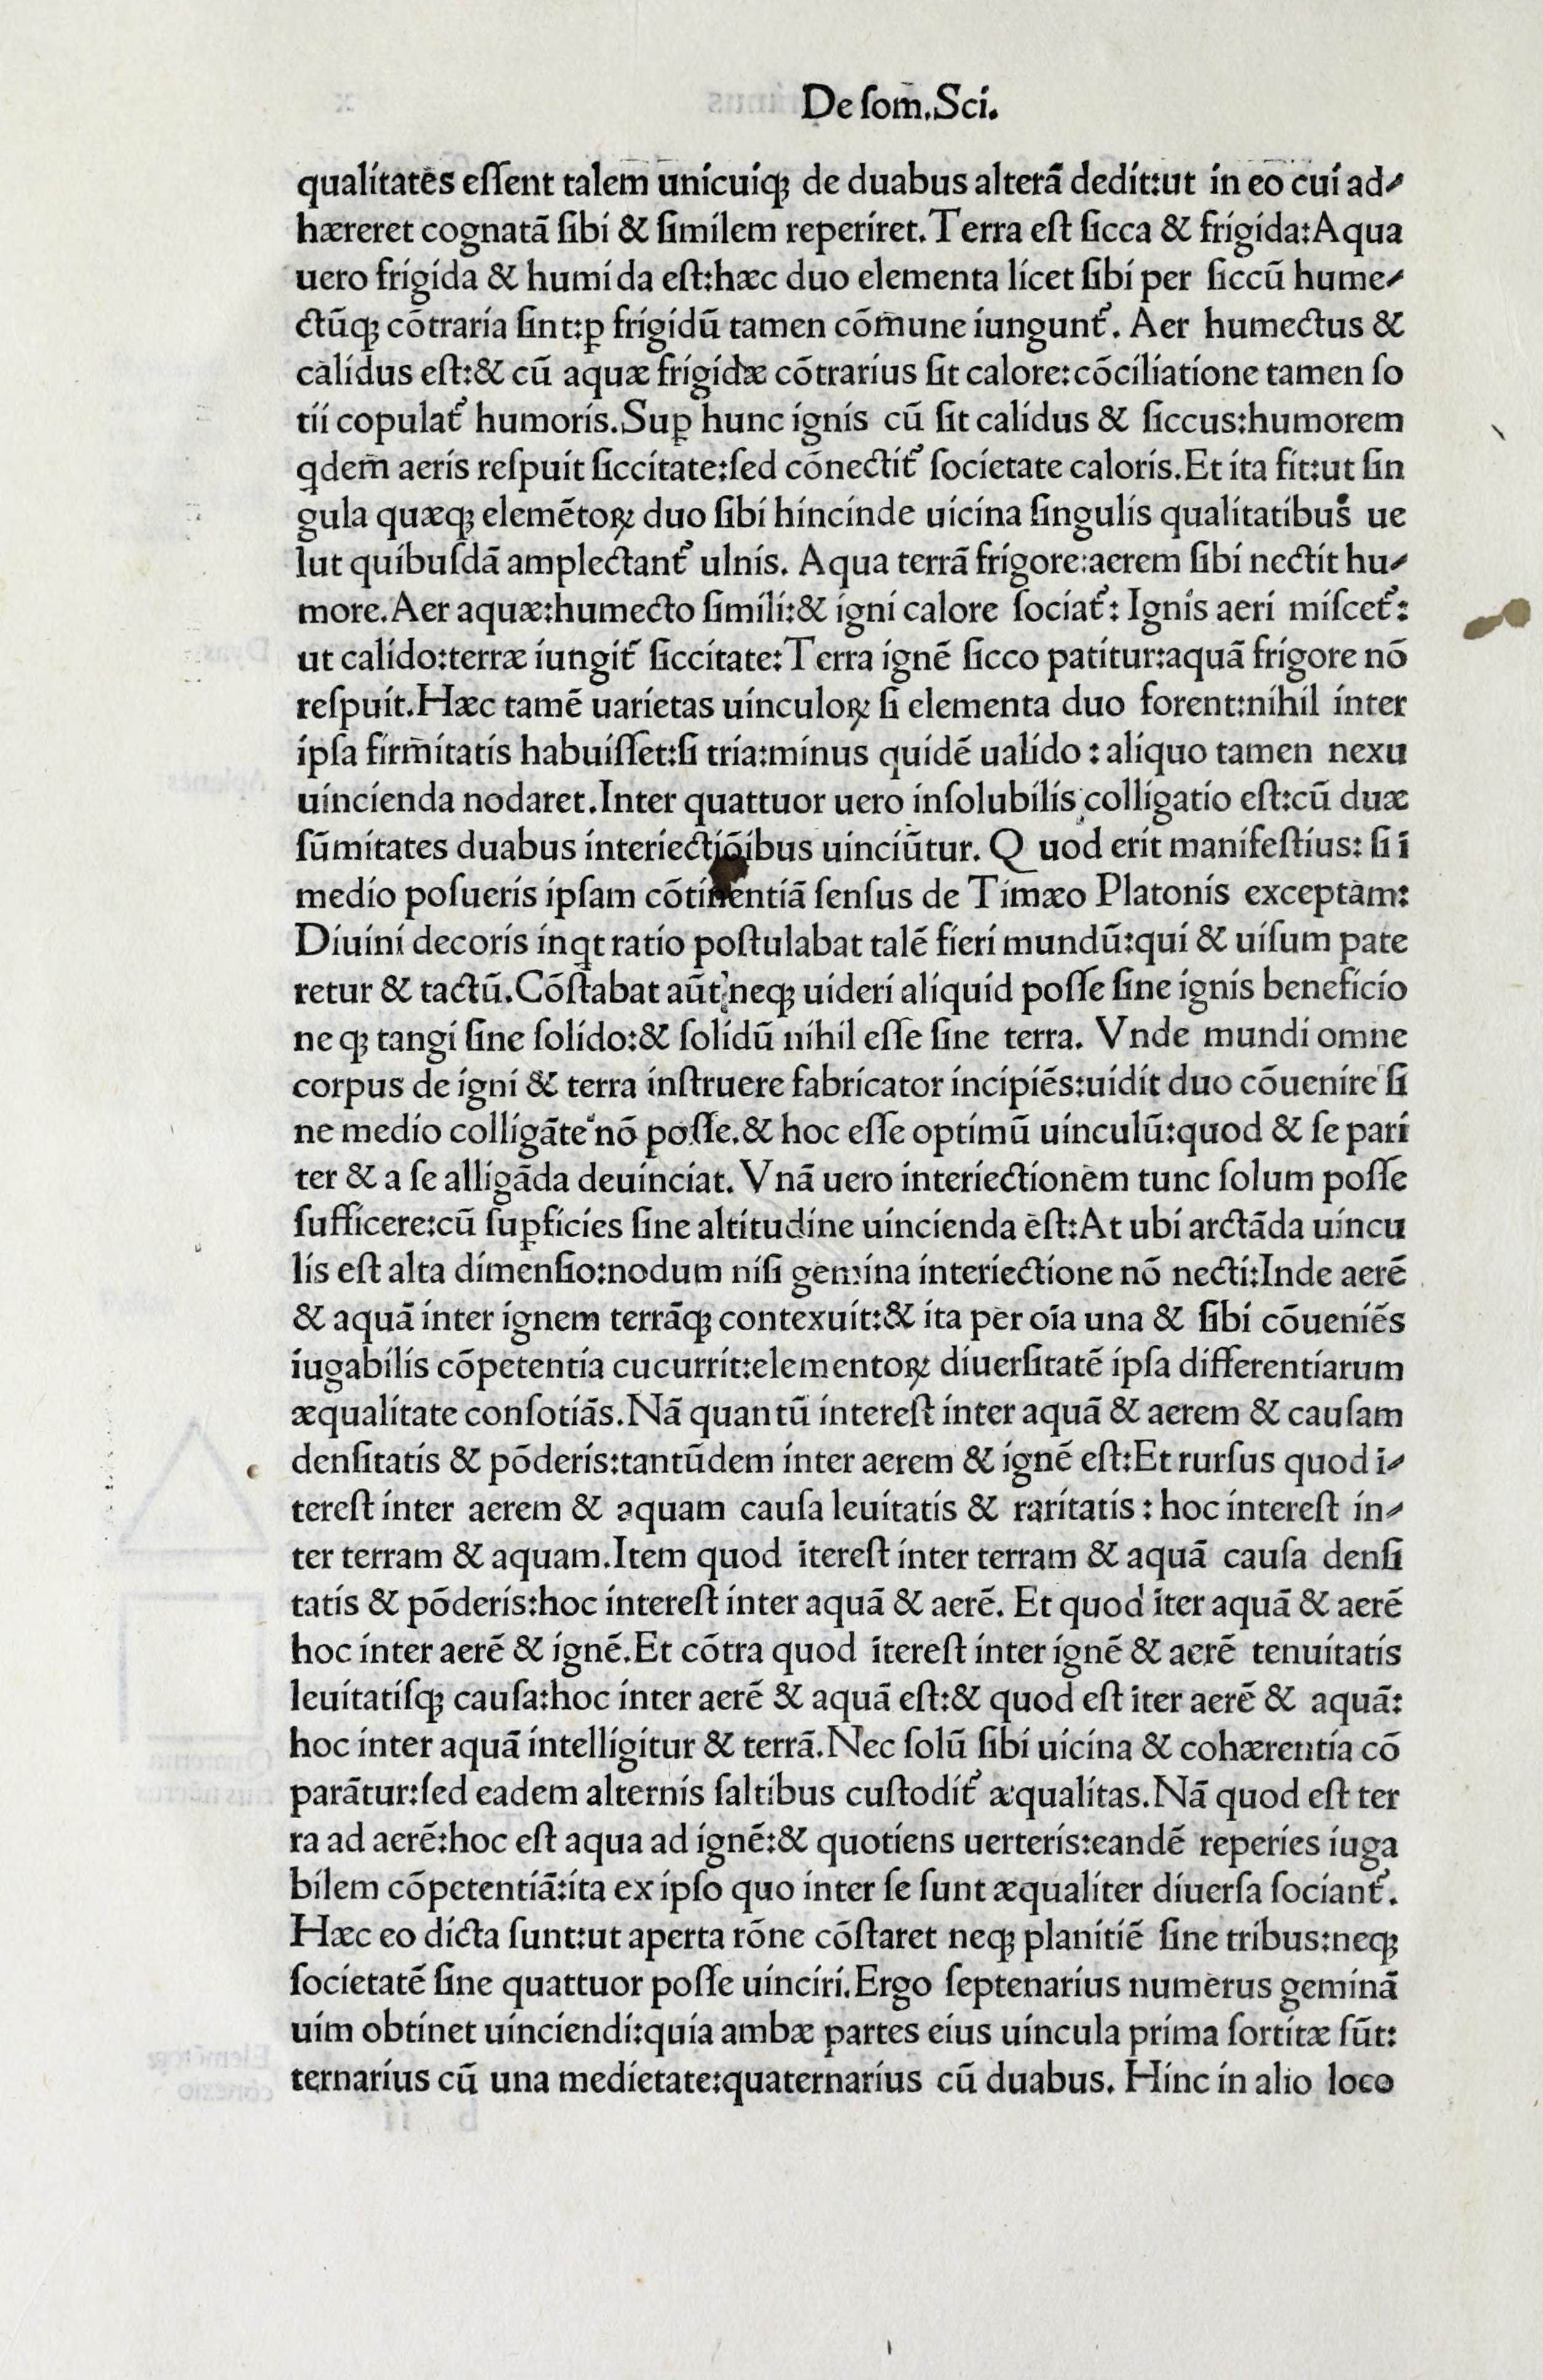 De ſom̄.Sci.
qualitates eſſent talem unicuiqꝫ de duabus alterā dedit:ut in eo cui ad⸗
hæreret cognatā ſibi & ſimilem reperiret.Terra eſt ſicca & frigida:Aqua
uero frigida & humida eſt:hæc duo elementa licet ſibi per ſiccū hume⸗
ctūqꝫ cōtraria ſint:ꝑ frigidū tamen cōmune iungunt᷒. Aer humectus &
calidus eſt:& cū aquæ frigidæ cōtrarius ſit calore:cōciliatione tamen ſo
tii copulat᷒ humoris.Suꝑ hunc ignis cū ſit calidus & ſiccus:humorem
qdem̄ aeris reſpuit ſiccitate:ſed cōnectit᷒ ſocietate caloris.Et ita fit:ut ſin
gula quæqꝫ elemētoꝝ duo ſibi hincinde uicina ſingulis qualitatibus ue
lut quibuſdā amplectant᷒ ulnis. Aqua terrā frigore:aerem ſibi nectit hu⸗
more.Aer aquæ:humecto ſimili:& igni calore ſociat᷒: Ignis aeri miſcet᷒:
ut calido:terræ iungit᷒ ſiccitate:Terra ignē ſicco patitur:aquā frigore nō
reſpuit.Hæc tamē uarietas uinculoꝝ ſi elementa duo forent:nihil inter
ipſa firm̄itatis habuiſſet:ſi tria:minus quidē ualido : aliquo tamen nexu
uincienda nodaret.Inter quattuor uero inſolubilis colligatio eſt:cū duæ
ſūmitates duabus interiectiōibus uinciūtur. Q uod erit manifeſtius: ſi ī
medio poſueris ipſam cōtinentiā ſenſus de Timæo Platonis exceptam:
Diuini decoris inqt ratio poſtulabat talē fieri mundū:qui & uiſum pate
retur & tactū.Cōſtabat aūt neqꝫ uideri aliquid poſſe ſine ignis beneficio
ne qꝫ tangi ſine ſolido:& ſolidū nihil eſſe ſine terra. Vnde mundi omne
corpus de igni & terra inſtruere fabricator incipiēs:uidit duo cōuenire ſi
ne medio colligāte nō poſſe.& hoc eſſe optimū uinculū:quod & ſe pari
ter & a ſe alligāda deuinciat. Vnā uero interiectionem tunc ſolum poſſe
ſufficere:cū ſuꝑficies ſine altitudine uincienda eſt:At ubi arctāda uincu
lis eſt alta dimenſio:nodum niſi gemina interiectione nō necti:Inde aerē
& aquā inter ignem terrāqꝫ contexuit:& ita per oīa una & ſibi cōueniēs
iugabilis cōpetentia cucurrit:elementoꝝ diuerſitatē ipſa differentiarum
æqualitate conſotiās.Nā quantū intereſt inter aquā & aerem & cauſam
denſitatis & pōderis:tantūdem inter aerem & ignē eſt:Et rurſus quod ī⸗
tereſt inter aerem & aquam cauſa leuitatis & raritatis : hoc intereſt in⸗
ter terram & aquam.Item quod ītereſt inter terram & aquā cauſa denſi
tatis & pōderis:hoc intereſt inter aquā & aerē. Et quod īter aquā & aerē
hoc inter aerē & ignē.Et cōtra quod ītereſt inter ignē & aerē tenuitatis
leuitatiſqꝫ cauſa:hoc inter aerē & aquā eſt:& quod eſt īter aerē & aquā:
hoc inter aquā intelligitur & terrā.Nec ſolū ſibi uicina & cohærentia cō
parātur:ſed eadem alternis ſaltibus cuſtodit᷒ æqualitas.Nā quod eſt ter
ra ad aerē:hoc eſt aqua ad ignē:& quotiens uerteris:eandē reperies iuga
bilem cōpetentiā:ita ex ipſo quo inter ſe ſunt æqualiter diuerſa ſociant᷒.
Hæc eo dicta ſunt:ut aperta rōne cōſtaret neqꝫ planitiē ſine tribus:neqꝫ
ſocietatē ſine quattuor poſſe uinciri.Ergo ſeptenarius numerus geminā
uim obtinet uinciendi:quia ambæ partes eius uincula prima ſortitæ ſūt:
ternarius cū una medietate:quaternarius cū duabus. Hinc in alio loco